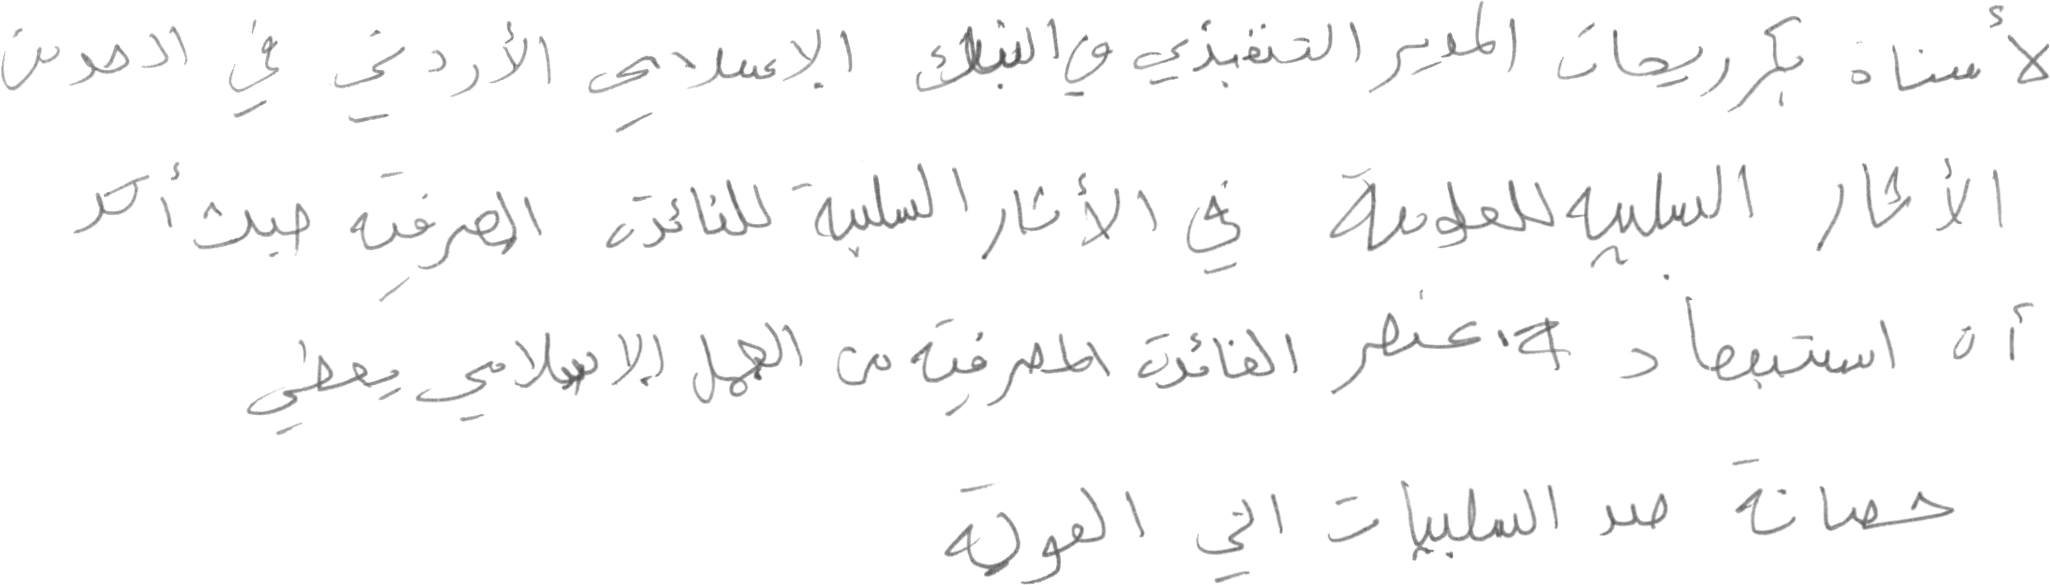 المدير التنفيذي في البنك الإسلامي الأردني في
الأثار السلبيه للعولمة في الأثار السلبية للفائدة المصرفية حيث أكد
أن استبعاد عنصر الفائدة المصرفية من العمل الاسلامي يعطي
حصانة ضد السلبيات التي العولمة